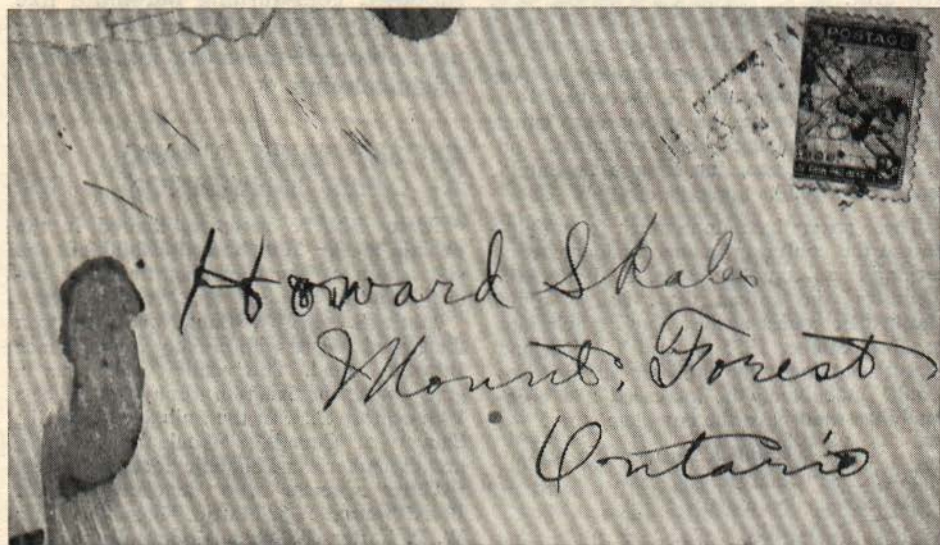 POSTAGE
Howard Skales
Mount. Forest
Ontario